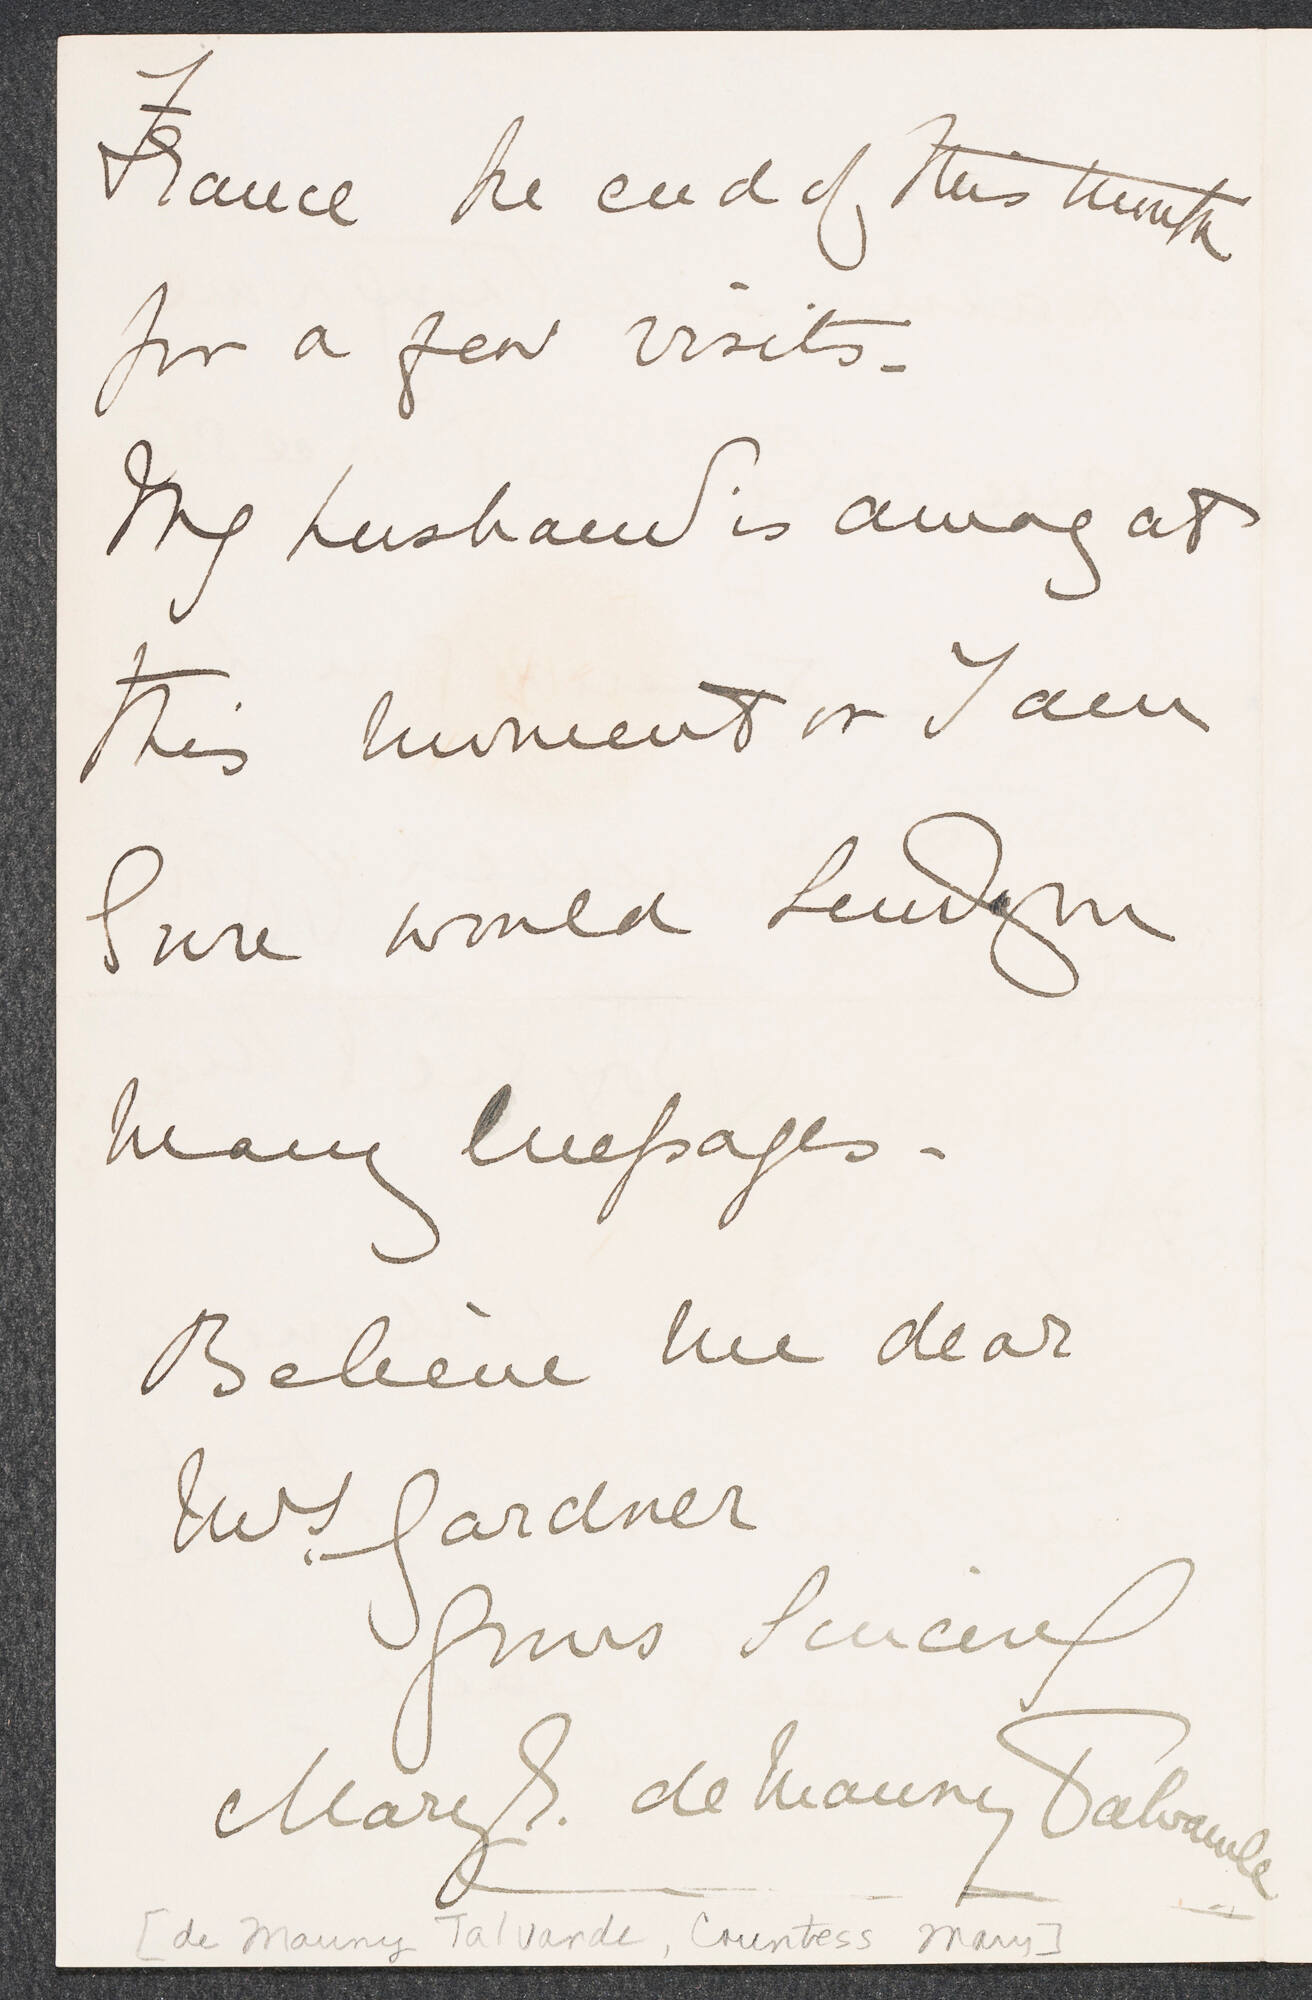 France the end of this month
for a few visits -
My husband is away at
this moment or I am
Sure would send you
many messages -
Believe me dear
Mrs. Gardner
Yours Sincerely
Mary E. de Mauny Talvande
[de Mauny Talvande, Countess Mary]